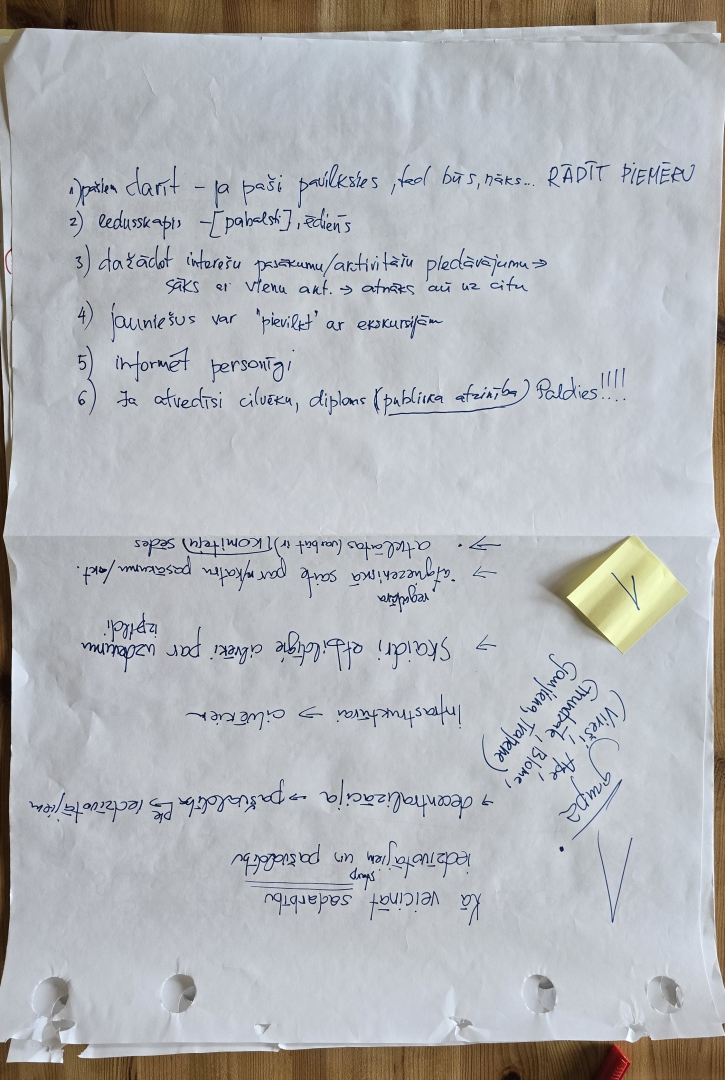 1) pašiem darīt – ja paši pavilksies, tad būs, nāks... RĀDĪT PIEMĒRU
2) ledusskapis – [pabalsti], ēdiens
3) dažādot interešu pasākumu/aktivitāšu piedāvājumu →
sāks ar vienu akt. → atnāks arī uz citu
4) jauniešus var "pievilkt" ar ekskursijām
5) informēt personīgi
6) Ja atvedīsi cilvēku, diploms (publiska atzinība) Paldies!!!!
1
1. grupa
(Vireši, Ape,
Grundzāle, Blome,
Gaujiena, Trapene)
Kā veicināt sadarbību
starp
iedzīvotājiem un pašvaldību
→ decentralizācija → pašvaldība pie iedzīvotājiem
Infrastruktūrai → cilvēkiem
→ Skaidri atbildīgie cilvēki par uzdevumu
izpildi
regulāra
→ atgriezeniskā saite par katru pasākumu/akt.
→ • atklātas (varbūt ir) (komiteju) sēdes